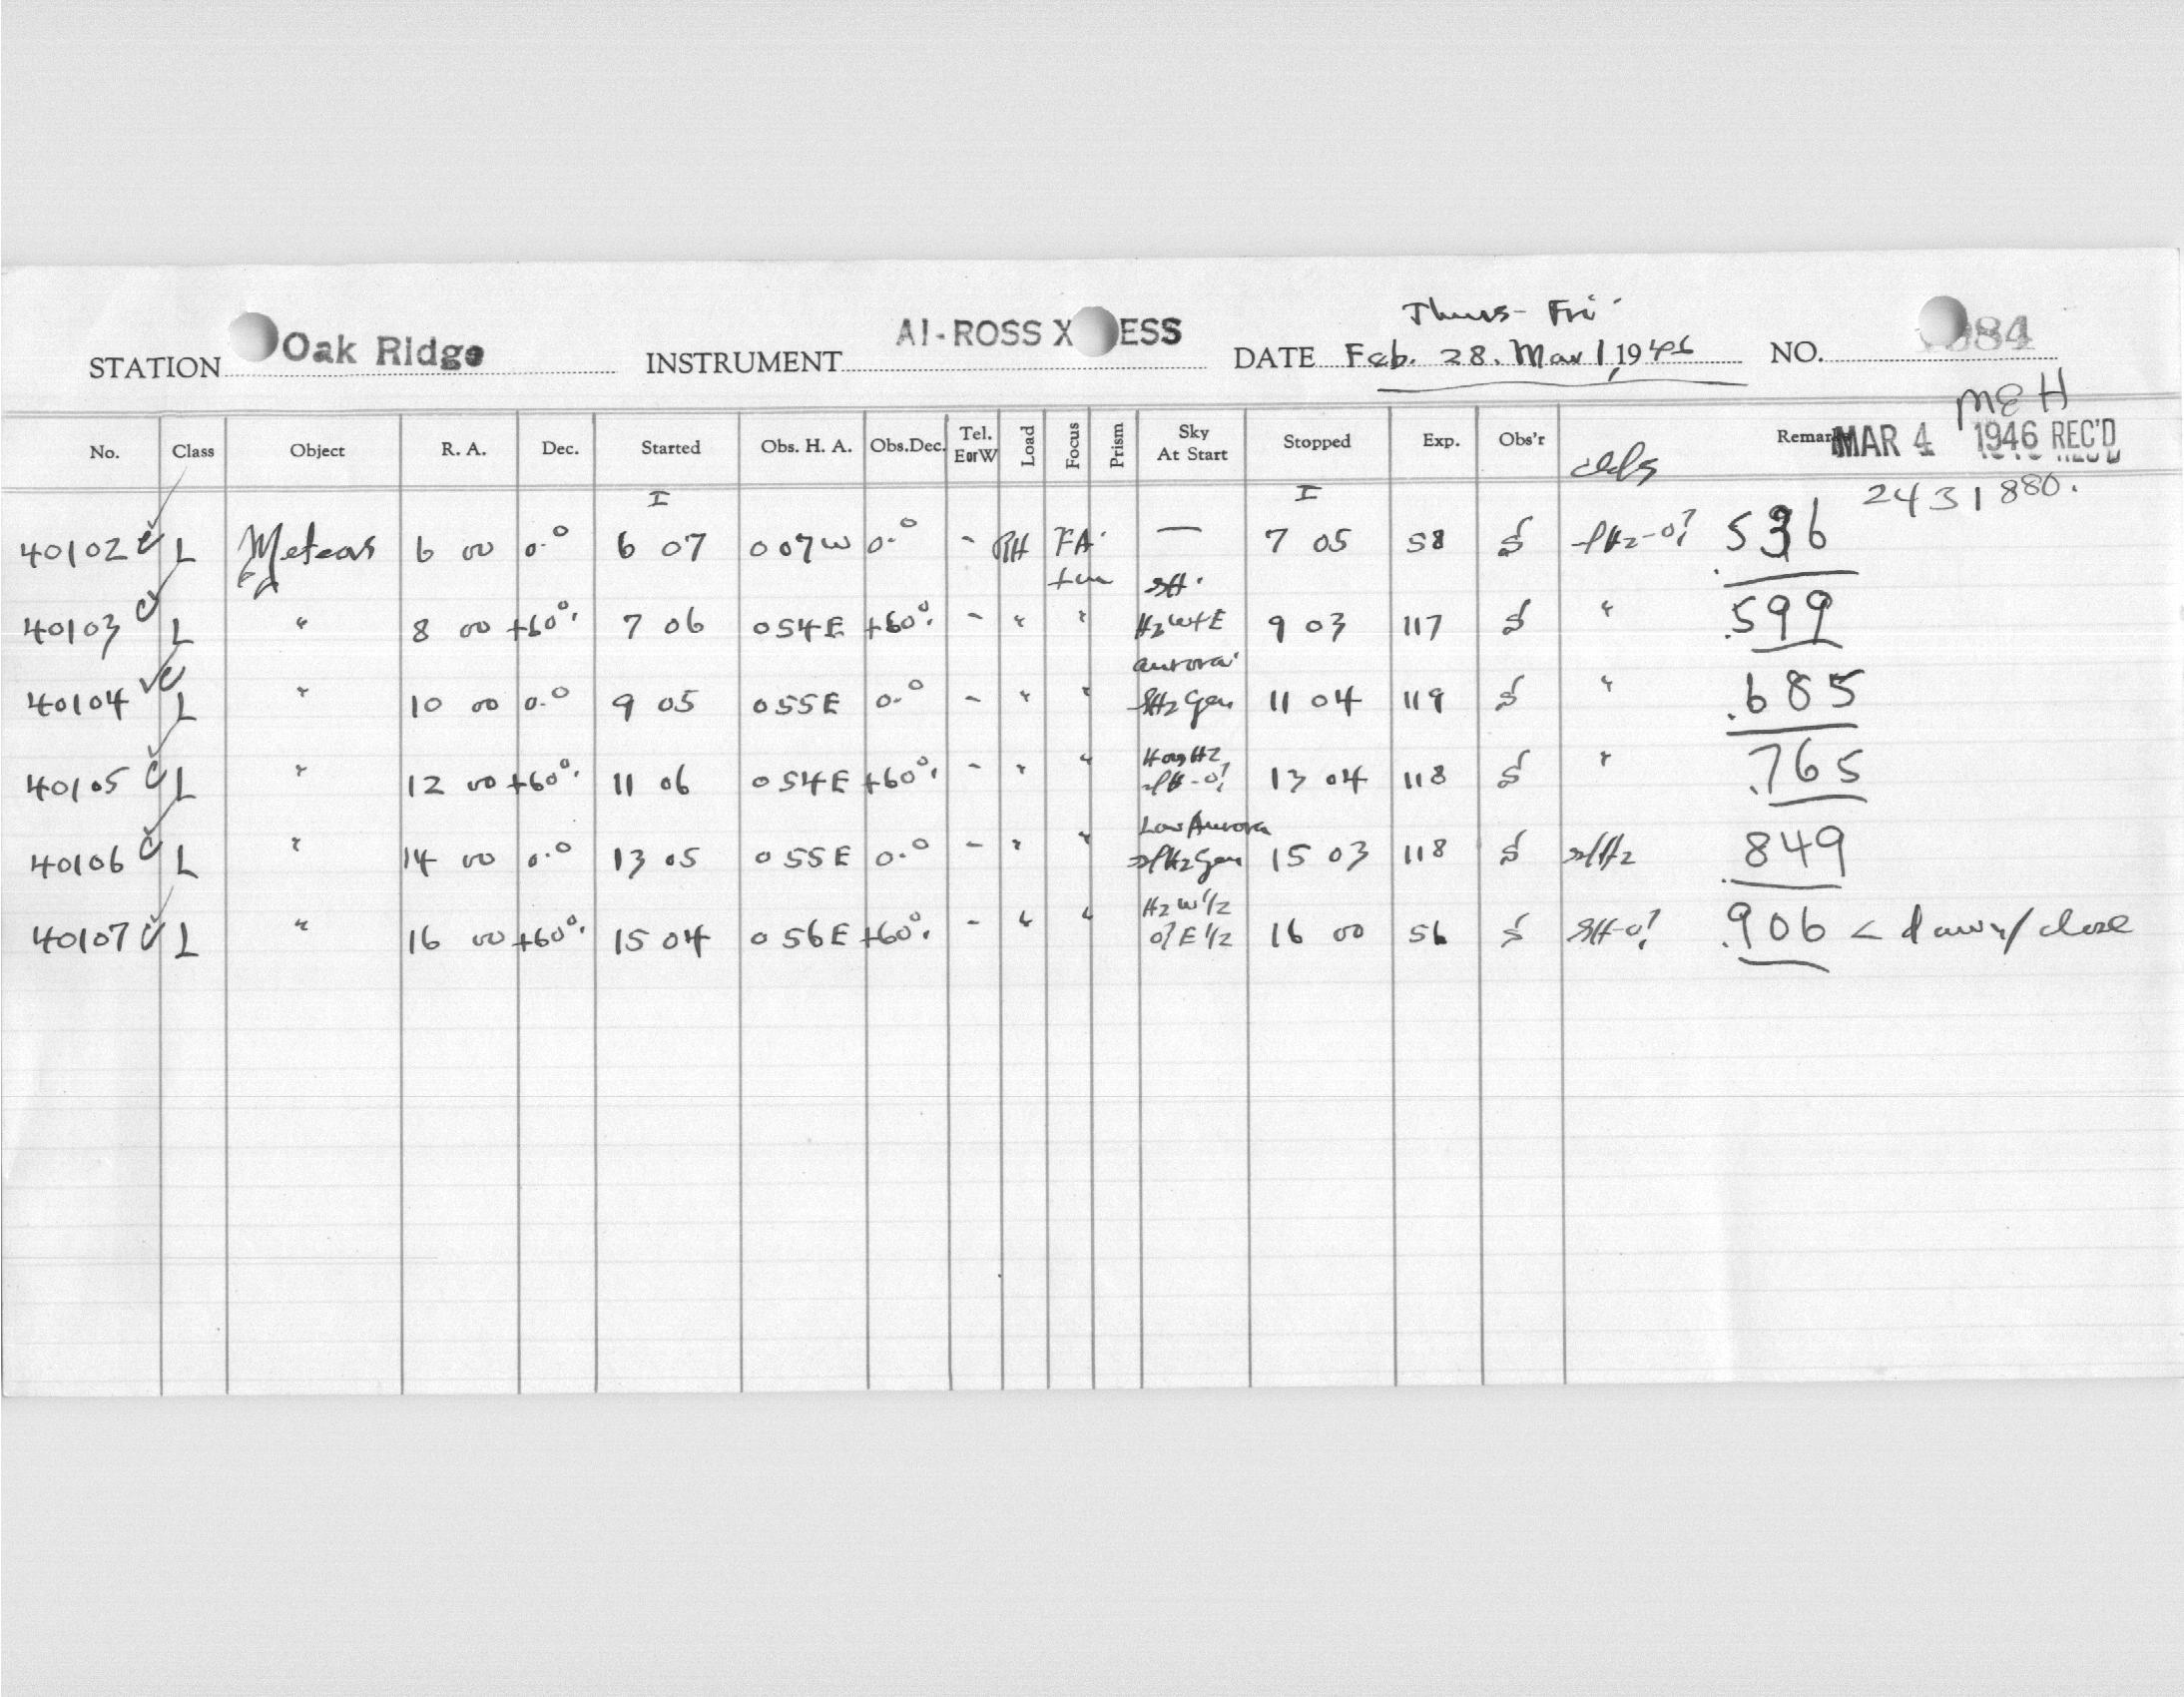 Thurs - Fri
STATION Oak Ridge INSTRUMENT AI-ROSS X ESS DATE Feb. 28. Mar 1, 1946 NO. 984
MEH
No. Class Object R. A. Dec. Started Obs. H. A. Obs.Dec. Tel. EorW Load Focus Prism Sky At Start Stopped Exp. Obs'r Remar MAR 4 1946 REC'D
I I 2431880.
40102 L Meteors 6 00 0.° 6 07 0 07 W 0.° - RH FA. — 7 05 58 S .536
40103 L " 8 00 +60°. 7 06 0 54 E +60°. - " " Hz W+E 9 03 117 S " .599
aurora
40104 L " 10 00 0.° 9 05 0 55 E 0.° - " " Gen 11 04 119 S " .685
40105 L " 12 00 +60°. 11 06 0 54 E +60°. - " " 13 04 118 S " .765
Low Aurora
40106 L " 14 00 0.° 13 05 0 55 E 0.° - " " Gen 15 03 118 S .849
40107 L " 16 00 +60°. 15 04 0 56 E +60°. - " " Hz W 1/2 0? E 1/2 16 00 56 S .906 < dawn / close